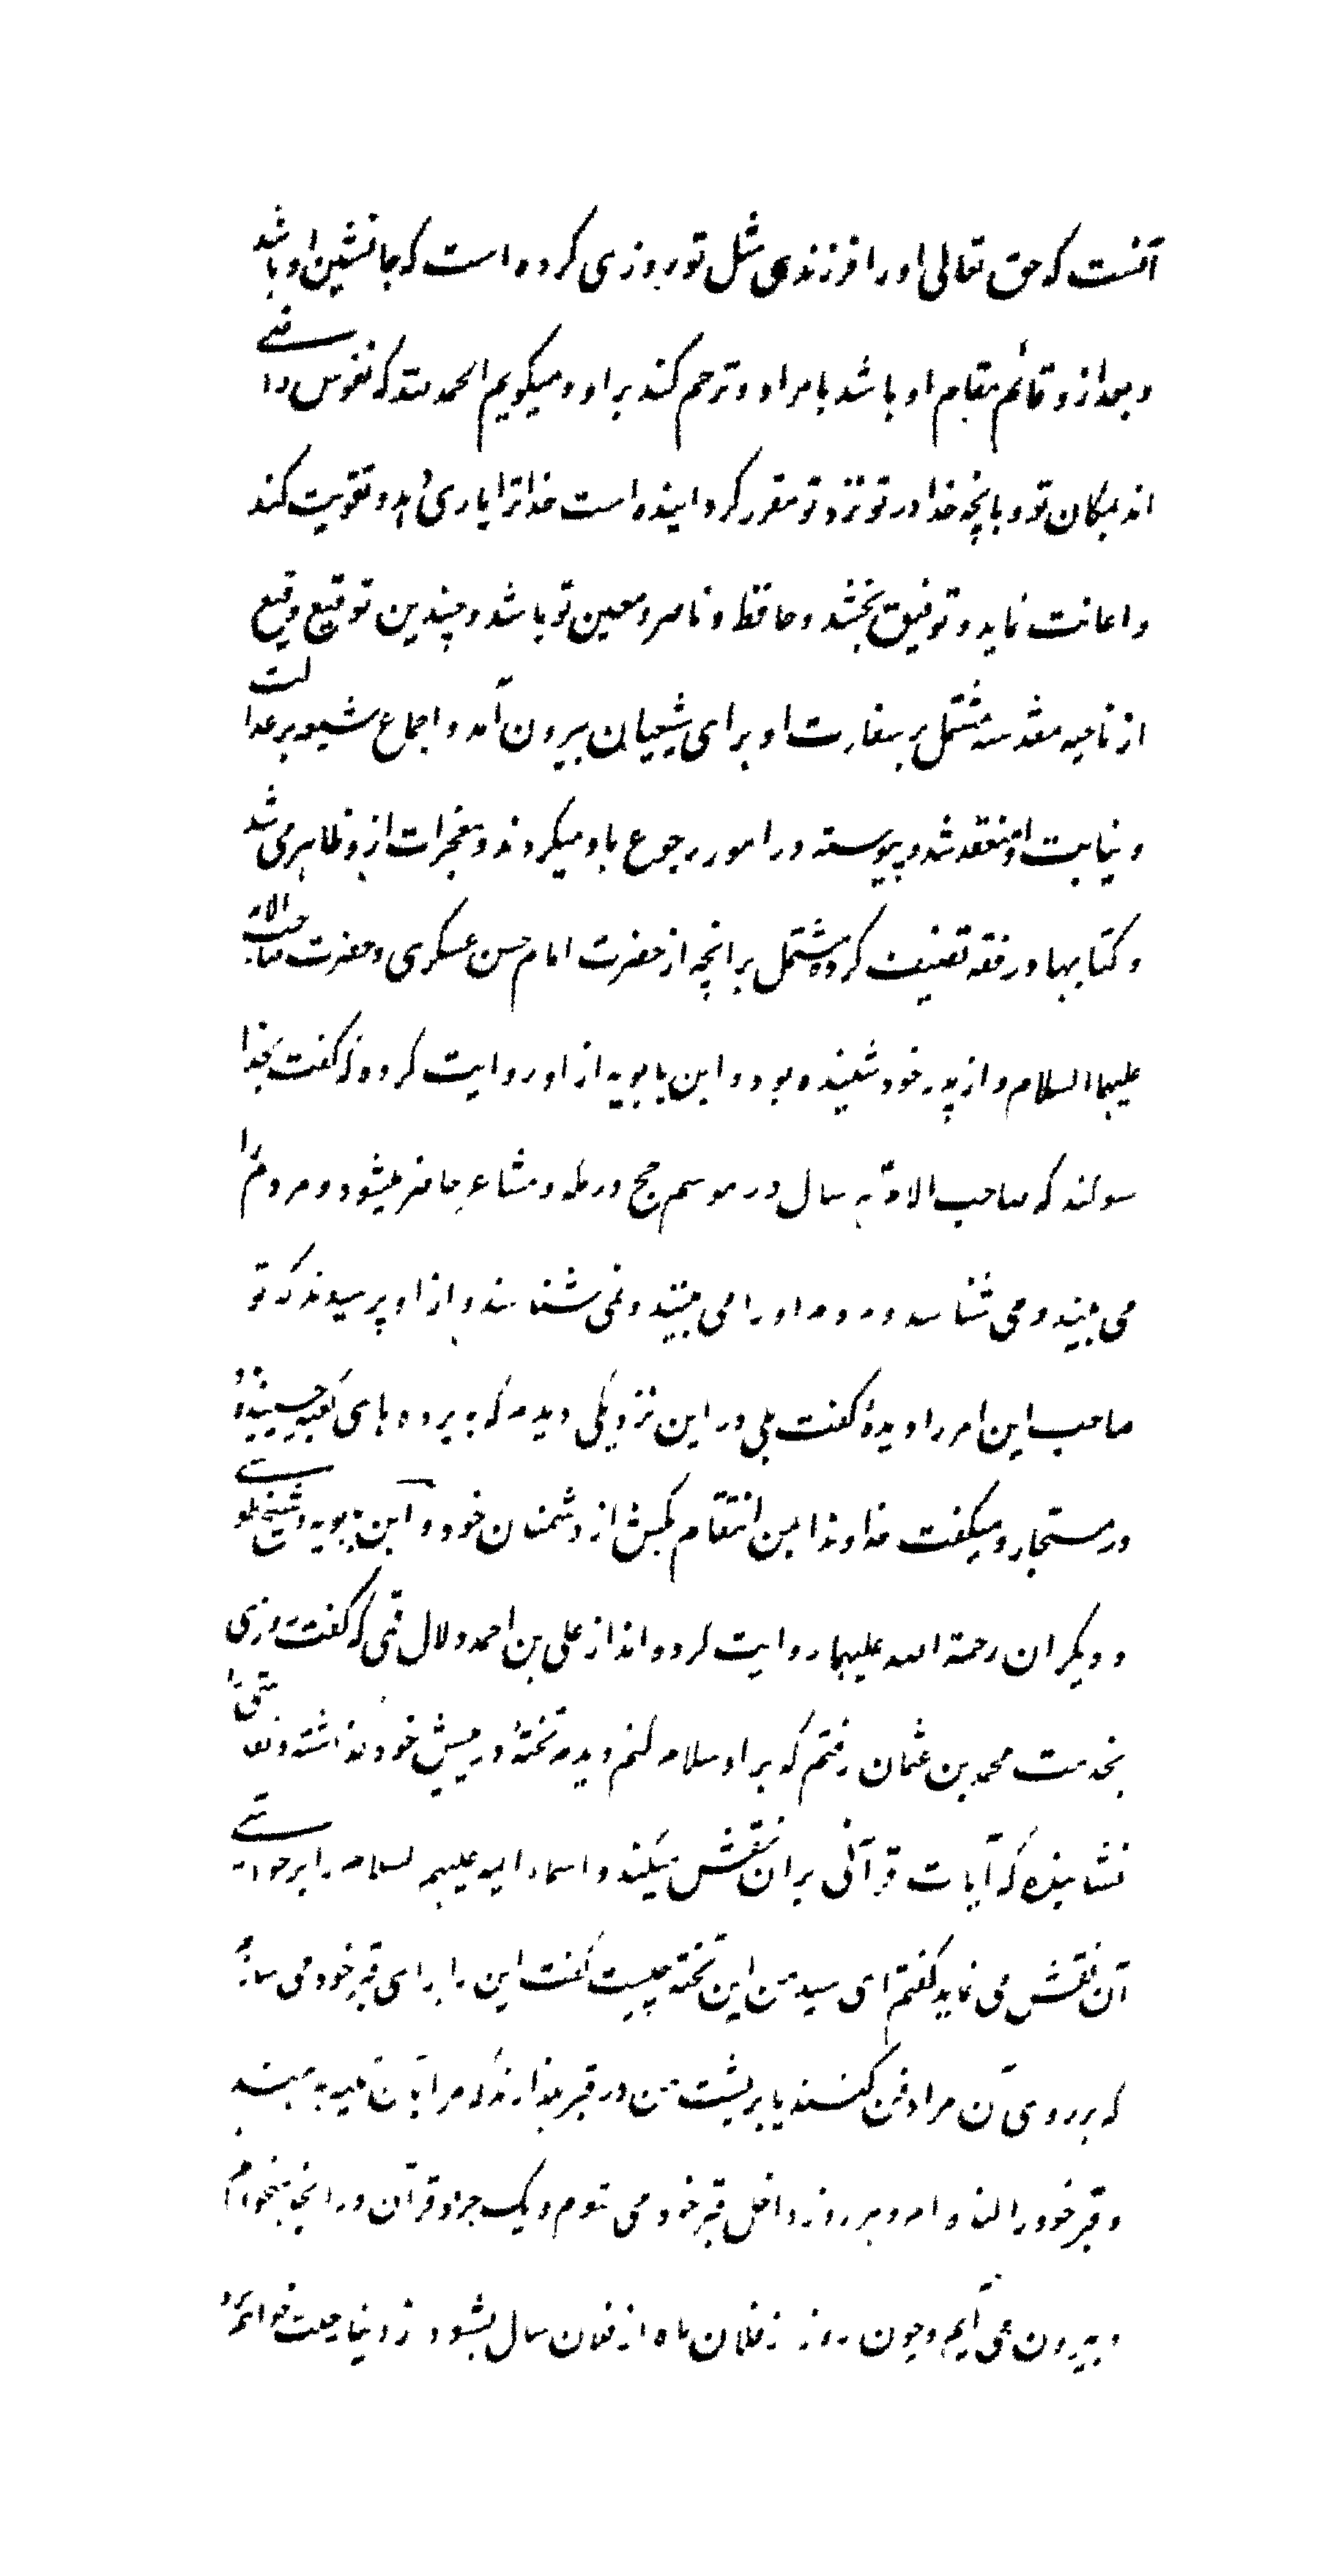 آنست که حق تعالی او را فرزندی مثل تو روزی کرده است که جانشین او باشد
و بعد از و قائم مقام او باشد بامر او و ترحم کند بر او و میگویم الحمد لله که نفوس راضی
اند بمکان تو و بانچه خدا در تو نزد تو مقرر گردانیده است خدا ترا یاری دهد و تقویت کند
و اعانت نماید و توفیق بخشد و حافظ و ناصر و معین تو باشد و چندین توقیع وقیع
از ناحیه مقدسه مشتمل بر سفارت او برای شیعیان بیرون آمد و اجماع شیعه بر عدالت
و نیابت او منعقد شد و پیوسته در امور رجوع باو میکردند و معجزات از و ظاهر می شد
و کتابها در فقه تصنیف کرده مشتمل بر انچه از حضرت امام حسن عسکری و حضرت صاحب الامر
علیهما السلام و از پدر خود شنیده بود و ابن بابویه از او روایت کرده که گفت بخدا
سوگند که صاحب الامر هر سال در موسم حج در مکه و مشاعر حاضر میشود و مردم را
می بیند و می شناسد و مردم او را می بینند و نمی شناسند و از او پرسیدند که تو
صاحب این امر را دیدهٔ گفت بلی در این نزدیکی دیدم که به پرده های کعبه چسپیده بود
در مستجار و میگفت خداوندا بمن انتقام بکش از دشمنان خود و ابن بابویه و شیخ طوسی
و دیگران رحمة الله علیهما روایت کرده اند از علی بن احمد دلال قمی که گفت روزی
بخدمت محمد بن عثمان رفتم که بر او سلام کنم دیدم تختهٔ در پیش خود گذاشته و نقاشی را
نشانیده که آیات قرآنی بر ان نقش میکند و اسماء ائمه علیهم السلام را بر حواشی
آن نقش می نماید گفتم ای سید من این تخته چیست گفت این را برای قبر خود می سازم
که بر روی آن مرا دفن کنند یا بر پشت من در قبر بگذارند که مرا بان تکیه بدهند
و قبر خود را کنده ام و هر روز داخل قبر خود می شوم و یک جزء قرآن در انجا میخوانم
و بیرون می آیم و چون روز فلان ماه از فلان سال بشود از دنیا رحلت خواهم کرد